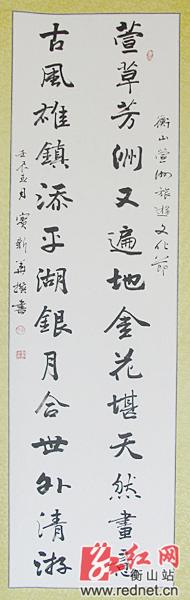 衡山萱洲旅遊文化節
萱草芳洲又遍地金花堪天然畫意
古風雄鎮添平湖銀月合世外清游
壬辰五月賓新華撰書
红网
衡山站
www.rednet.cn